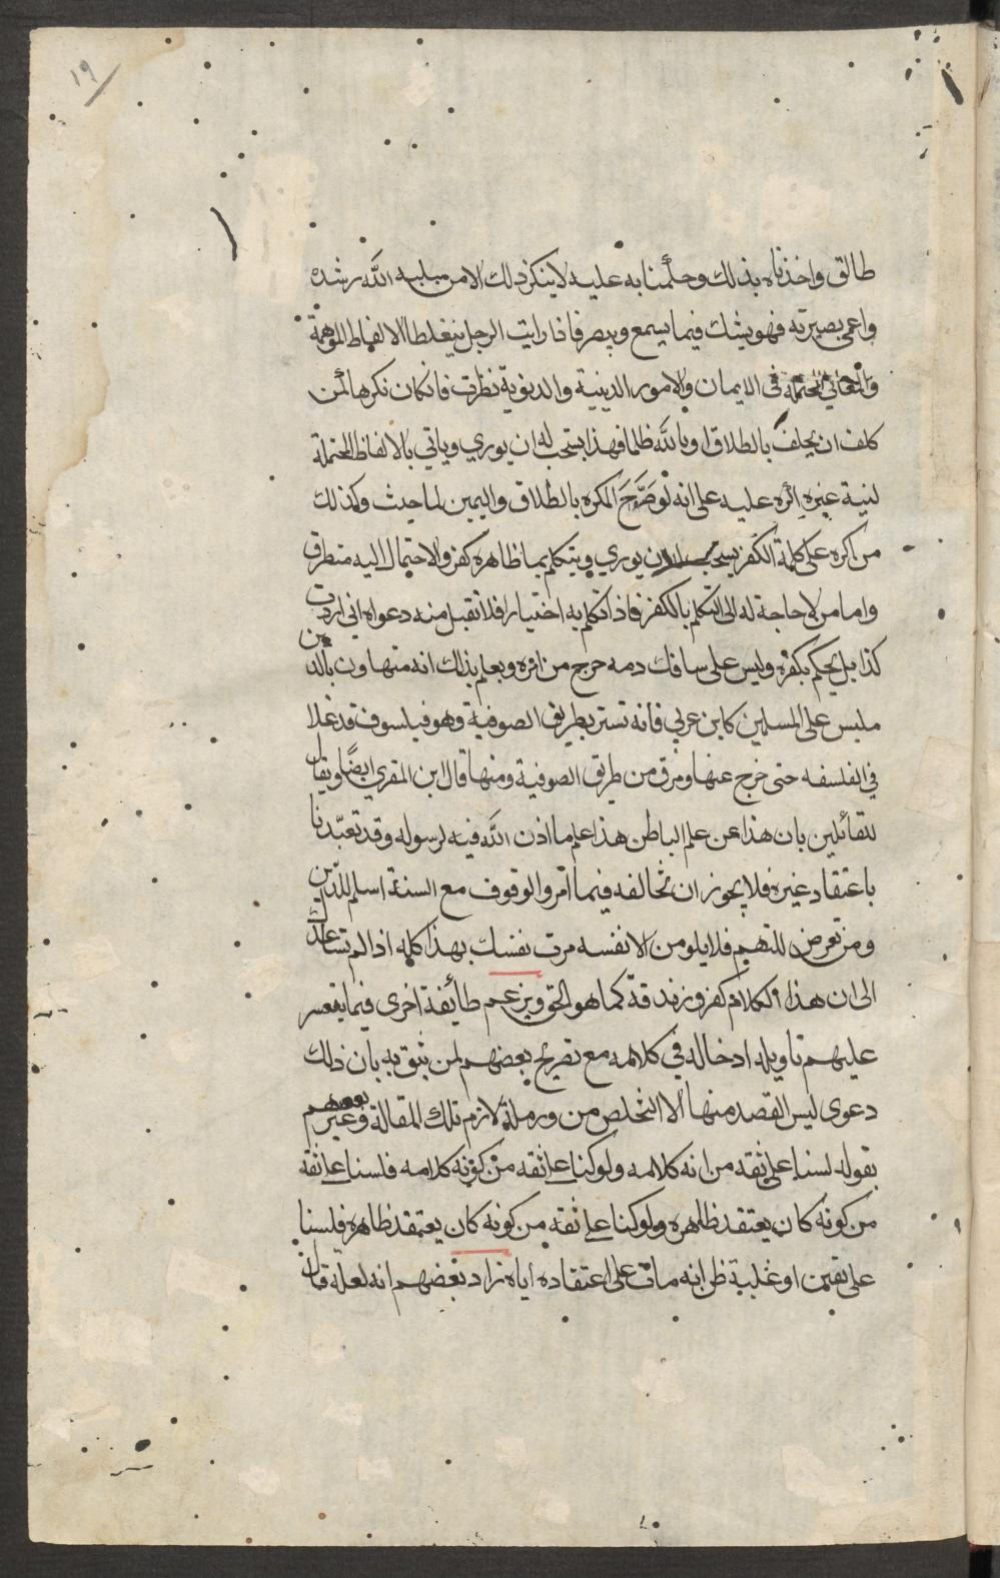 ١٩
طالق واخذناه بذلك وحكمنا به عليه لا ينكر ذلك الا من سلبه الله رشده
واعمى بصيرته فهو يشك فيما يسمع ويبصر فاذا رايت الرجل يتغلط الالفاظ الموهمة
والمعاني المحتملة في الايمان والامور الدينية والدنيوية نظرت فان كان نكرها لمن
كلف ان يحلف بالطلاق او بالله ظلما فهذا يستحب له ان يوري وياتي بالالفاظ المحتملة
لنية غيره اكره عليه على انه لو صَرَّحَ المكره بالطلاق واليمين لما حنث وكذلك
من اكره على كلمة الكفر يستحب ان يوري ويتكلم بما ظاهره كفر والاحتمال اليه متطرق
واما من لا حاجة له الى التكلم بالكفر فاذا تكلم به اختيارا فلا تقبل منه دعواه اني اردت
كذا بل يحكم بكفره وليس على سافك دمه حرج من امره ويعلم بذلك انه متهاون بالدين
ملبس على المسلمين كابن عربي فانه تستر بطريق الصوفية وهو فيلسوف قد غلا
في الفلسفه حتى خرج عنها ومرق من طريق الصوفية ومنها قال ابن المقري ايضا ويقال
للقائلين بان هذا من علم الباطن هذا علم ما اذن الله فيه لرسوله وقد تعبّدنا
باعتقاد غيره فلا يجوز ان نخالفه فيما امر والوقوف مع السنة اسلم للدين
ومن تعرض للتهم فلا يلومن الا نفسه مرت نفسك بهذا كله اذا لم تساعدك
الى ان هذا الكلام كفر وزندقة كما هو الحق ويزعم طائفة اخرى فيما يتعسر
عليهم تاويله ادخاله في كلامه مع تصريح بعضهم لمن يثق به بان ذلك
دعوى ليس القصد منها الا التخلص من ورطة لازم تلك المقالة وغيرهم بعضهم
بقوله لسنا على ثقه من انه كلامه ولو كنا على ثقه من كونه كلامه فلسنا على ثقة
من كونه كان يعتقد ظاهره ولو كنا على ثقه من كونه كان يعتقد ظاهره فلسنا
على يقين او غلبة ظن انه مات على اعتقاده اياه زاد بعضهم انه لعله قال